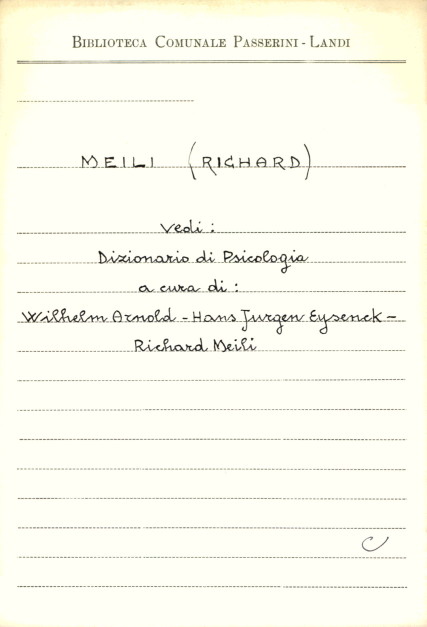 BIBLIOTECA COMUNALE PASSERINI - LANDI
MEILI (RICHARD)
Vedi :
Dizionario di Psicologia
a cura di :
Wilhelm Arnold - Hans Jurgen Eysenck -
Richard Meili
C